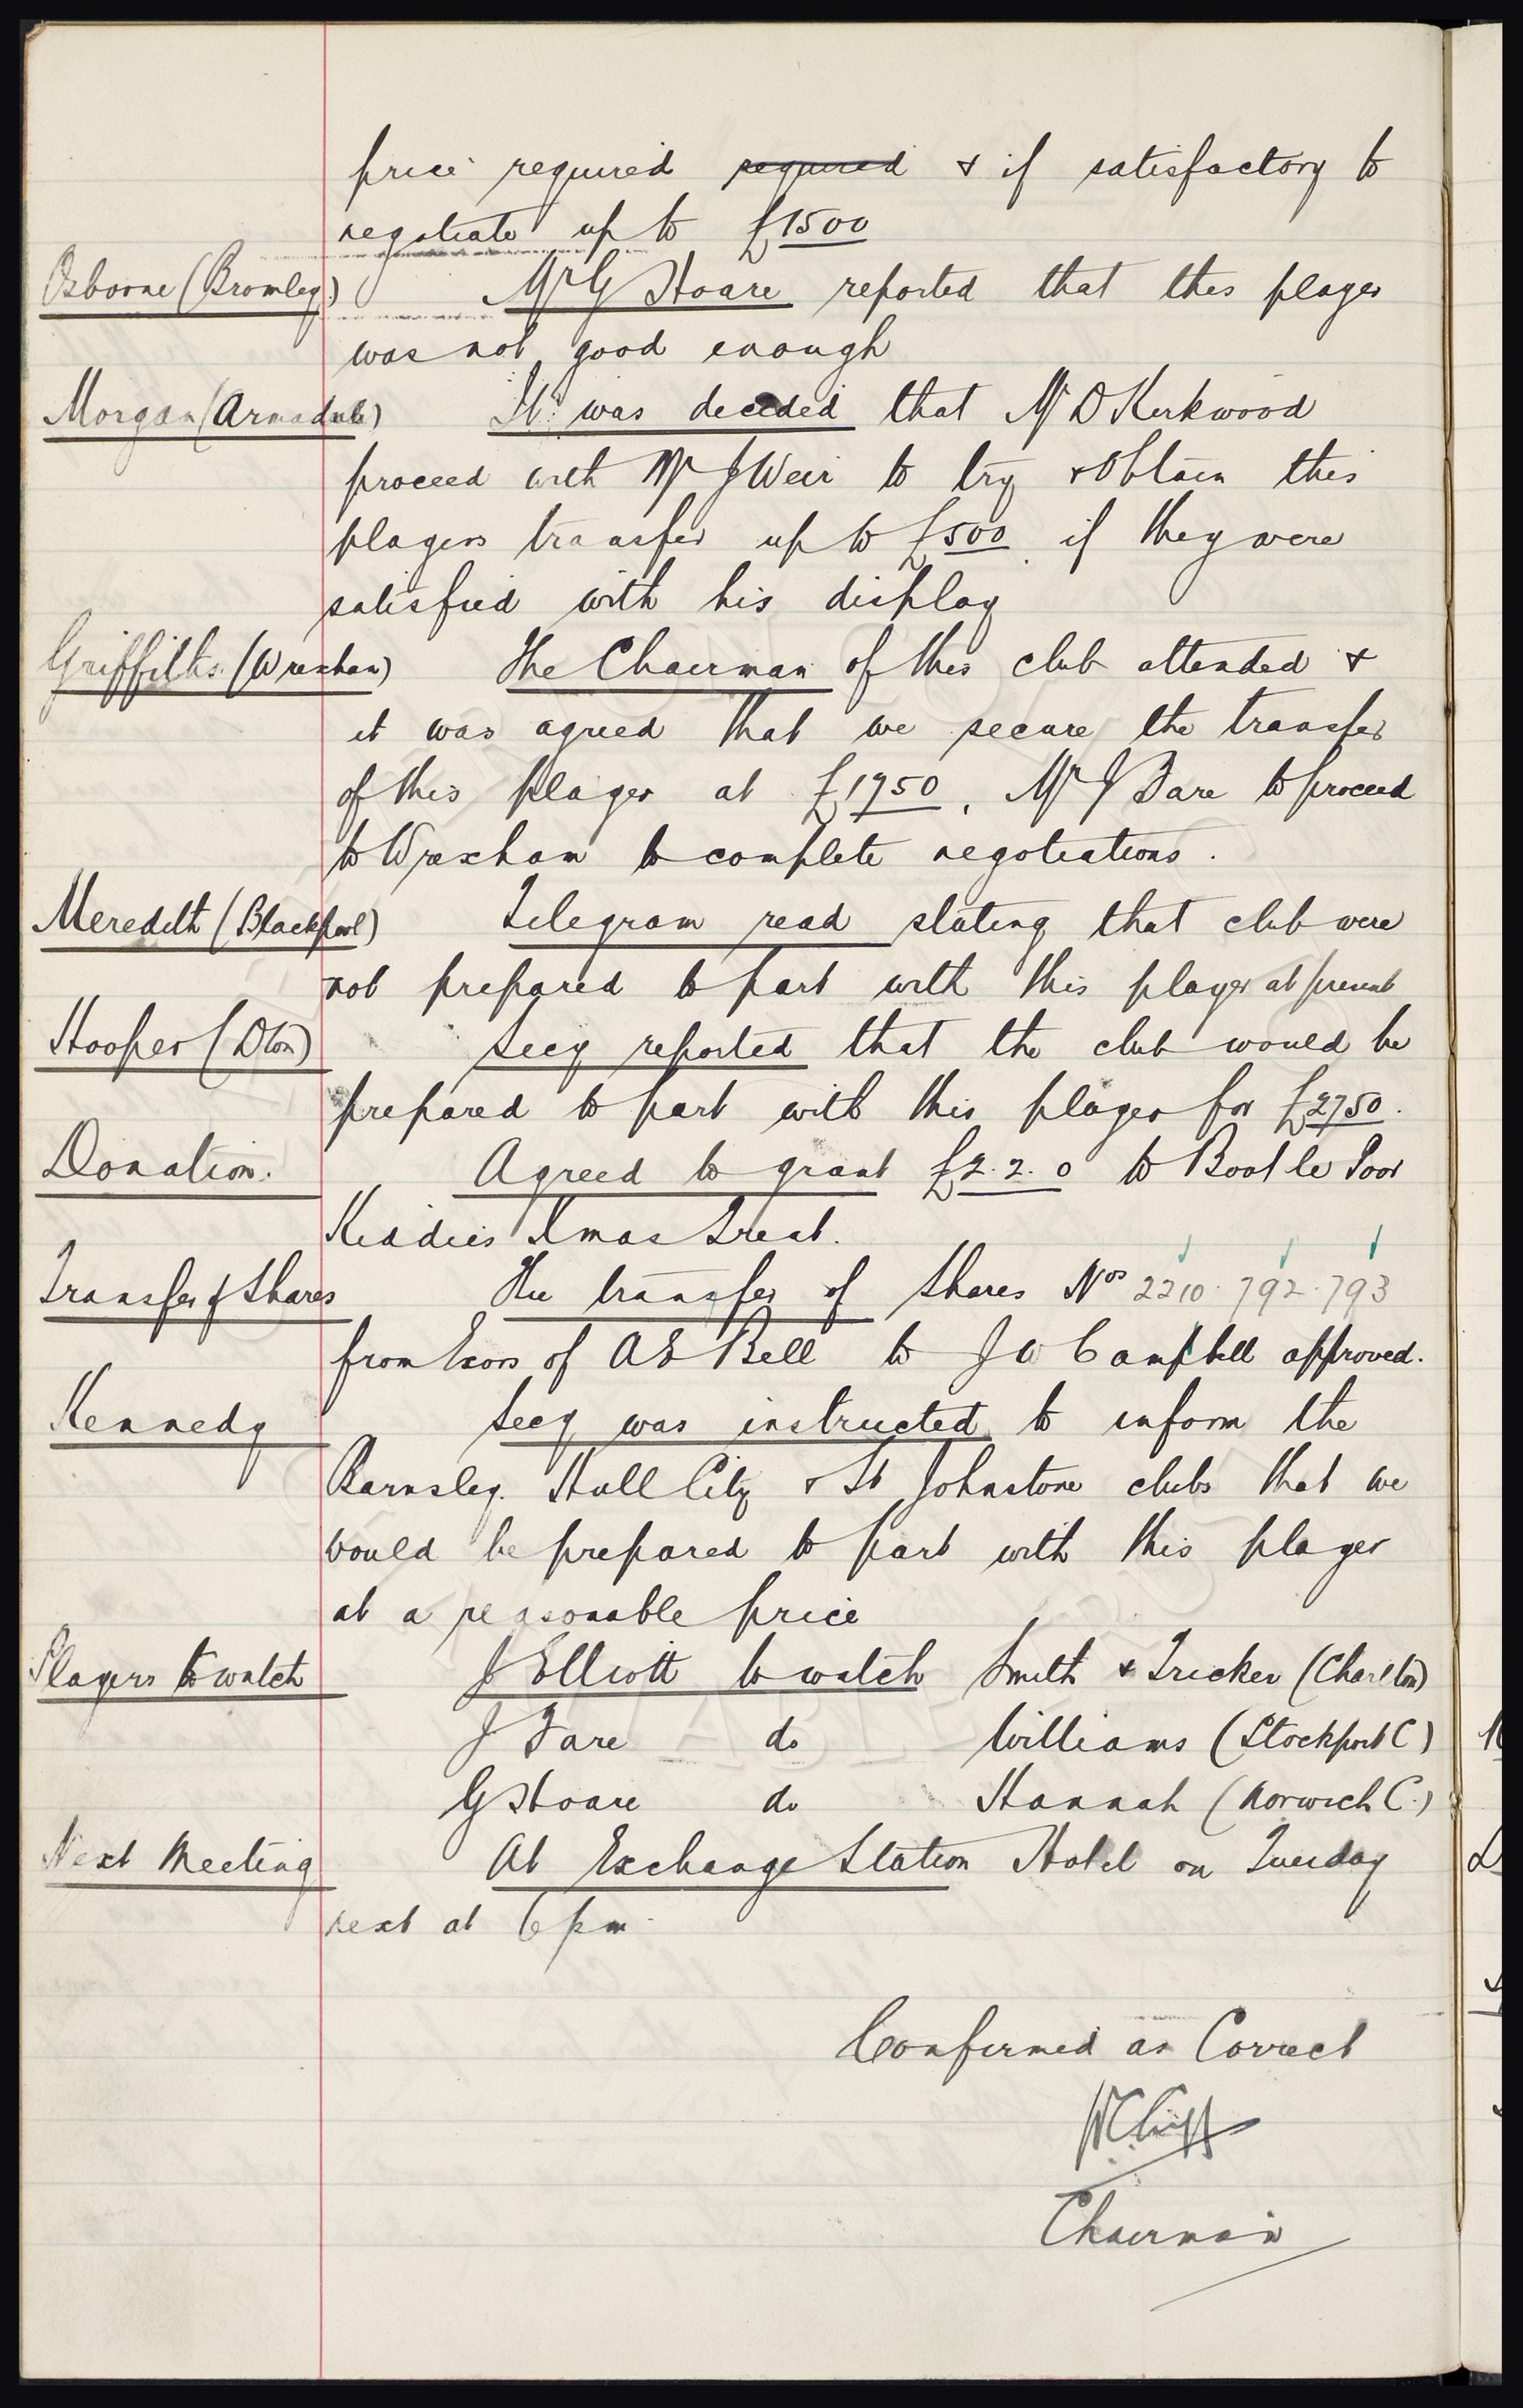 price required required & if satisfactory to
negotiate up to £1500
Osborne (Bromley) Mr G Hoare reported that this player
was not good enough
Morgan (Armadale) It was decided that Mr D Kirkwood
proceed with Mr J Weir to try & obtain this
players transfer up to £500 if they were
satisfied with his display
Griffiths (Wrexham) The Chairman of this club attended &
it was agreed that we secure the transfer
of this player at £1750, Mr J Fare to proceed
to Wrexham to complete negotiations.
Meredith (Blackpool) Telegram read stating that club were
not prepared to part with this player at present
Hooper (Dton) Secy reported that the club would be
prepared to part with this player for £2750.
Donation. Agreed to grant £2.2.0 to Bootle Poor
Kiddies Xmas Treat.
Transfer of Shares The transfer of Shares Nos 2210. 792. 793
from Exors of A E Bell to J W Campbell approved.
Kennedy Secy was instructed to inform the
Barnsley. Hull City & St Johnstone clubs that we
would be prepared to part with this player
at a reasonable price
Players to watch J Elliott to watch Smith & Tricker (Charlton)
J Fare do Williams (Stockport C)
G Hoare do Hannah (Norwich C.)
Next Meeting At Exchange Station Hotel on Tuesday
next at 6 pm
Confirmed as Correct
W C Cuff
Chairman